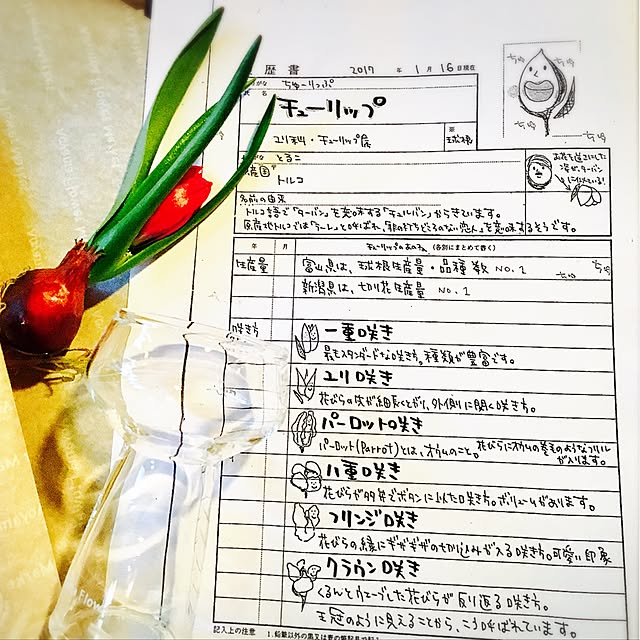 歴書 2017 年 1 月 16 日現在
ちゅーりっぷ
チューリップ
ユリ科・チューリップ属
※ 球根
とるこ
トルコ
お花を逆さにした
姿がターバン
に似ている!
名前の由来
トルコ語で「ターバン」を意味する「チュルバン」からきています。
原産地トルコでは「ラーレ」と呼ばれ、「非の打ちどころのない恋人」を意味するそうです。
年 月 チューリップのあれこれ (各別にまとめて書く)
生産量 富山県は、球根生産量・品種数 NO.1
新潟県は、切り花生産量 NO.1
咲き方 一重咲き
最もスタンダードな咲き方。種類が豊富です。
ユリ咲き
花びらの先が細長くとがり、外側に開く咲き方。
パーロット咲き
パーロット(Parrot)とは、オウムのこと。花びらにオウムの羽毛のようなフリル
が入ります。
八重咲き
花びらが多弁でボタンに似た咲き方。ボリュームがあります。
フリンジ咲き
花びらの縁にギザギザの切り込みが入る咲き方。可愛い印象
クラウン咲き
くるんとウェーブした花びらが反り返る咲き方。
王冠のように見えることから、こう呼ばれています。
記入上の注意 1.鉛筆以外の黒又は青の筆記具で記入